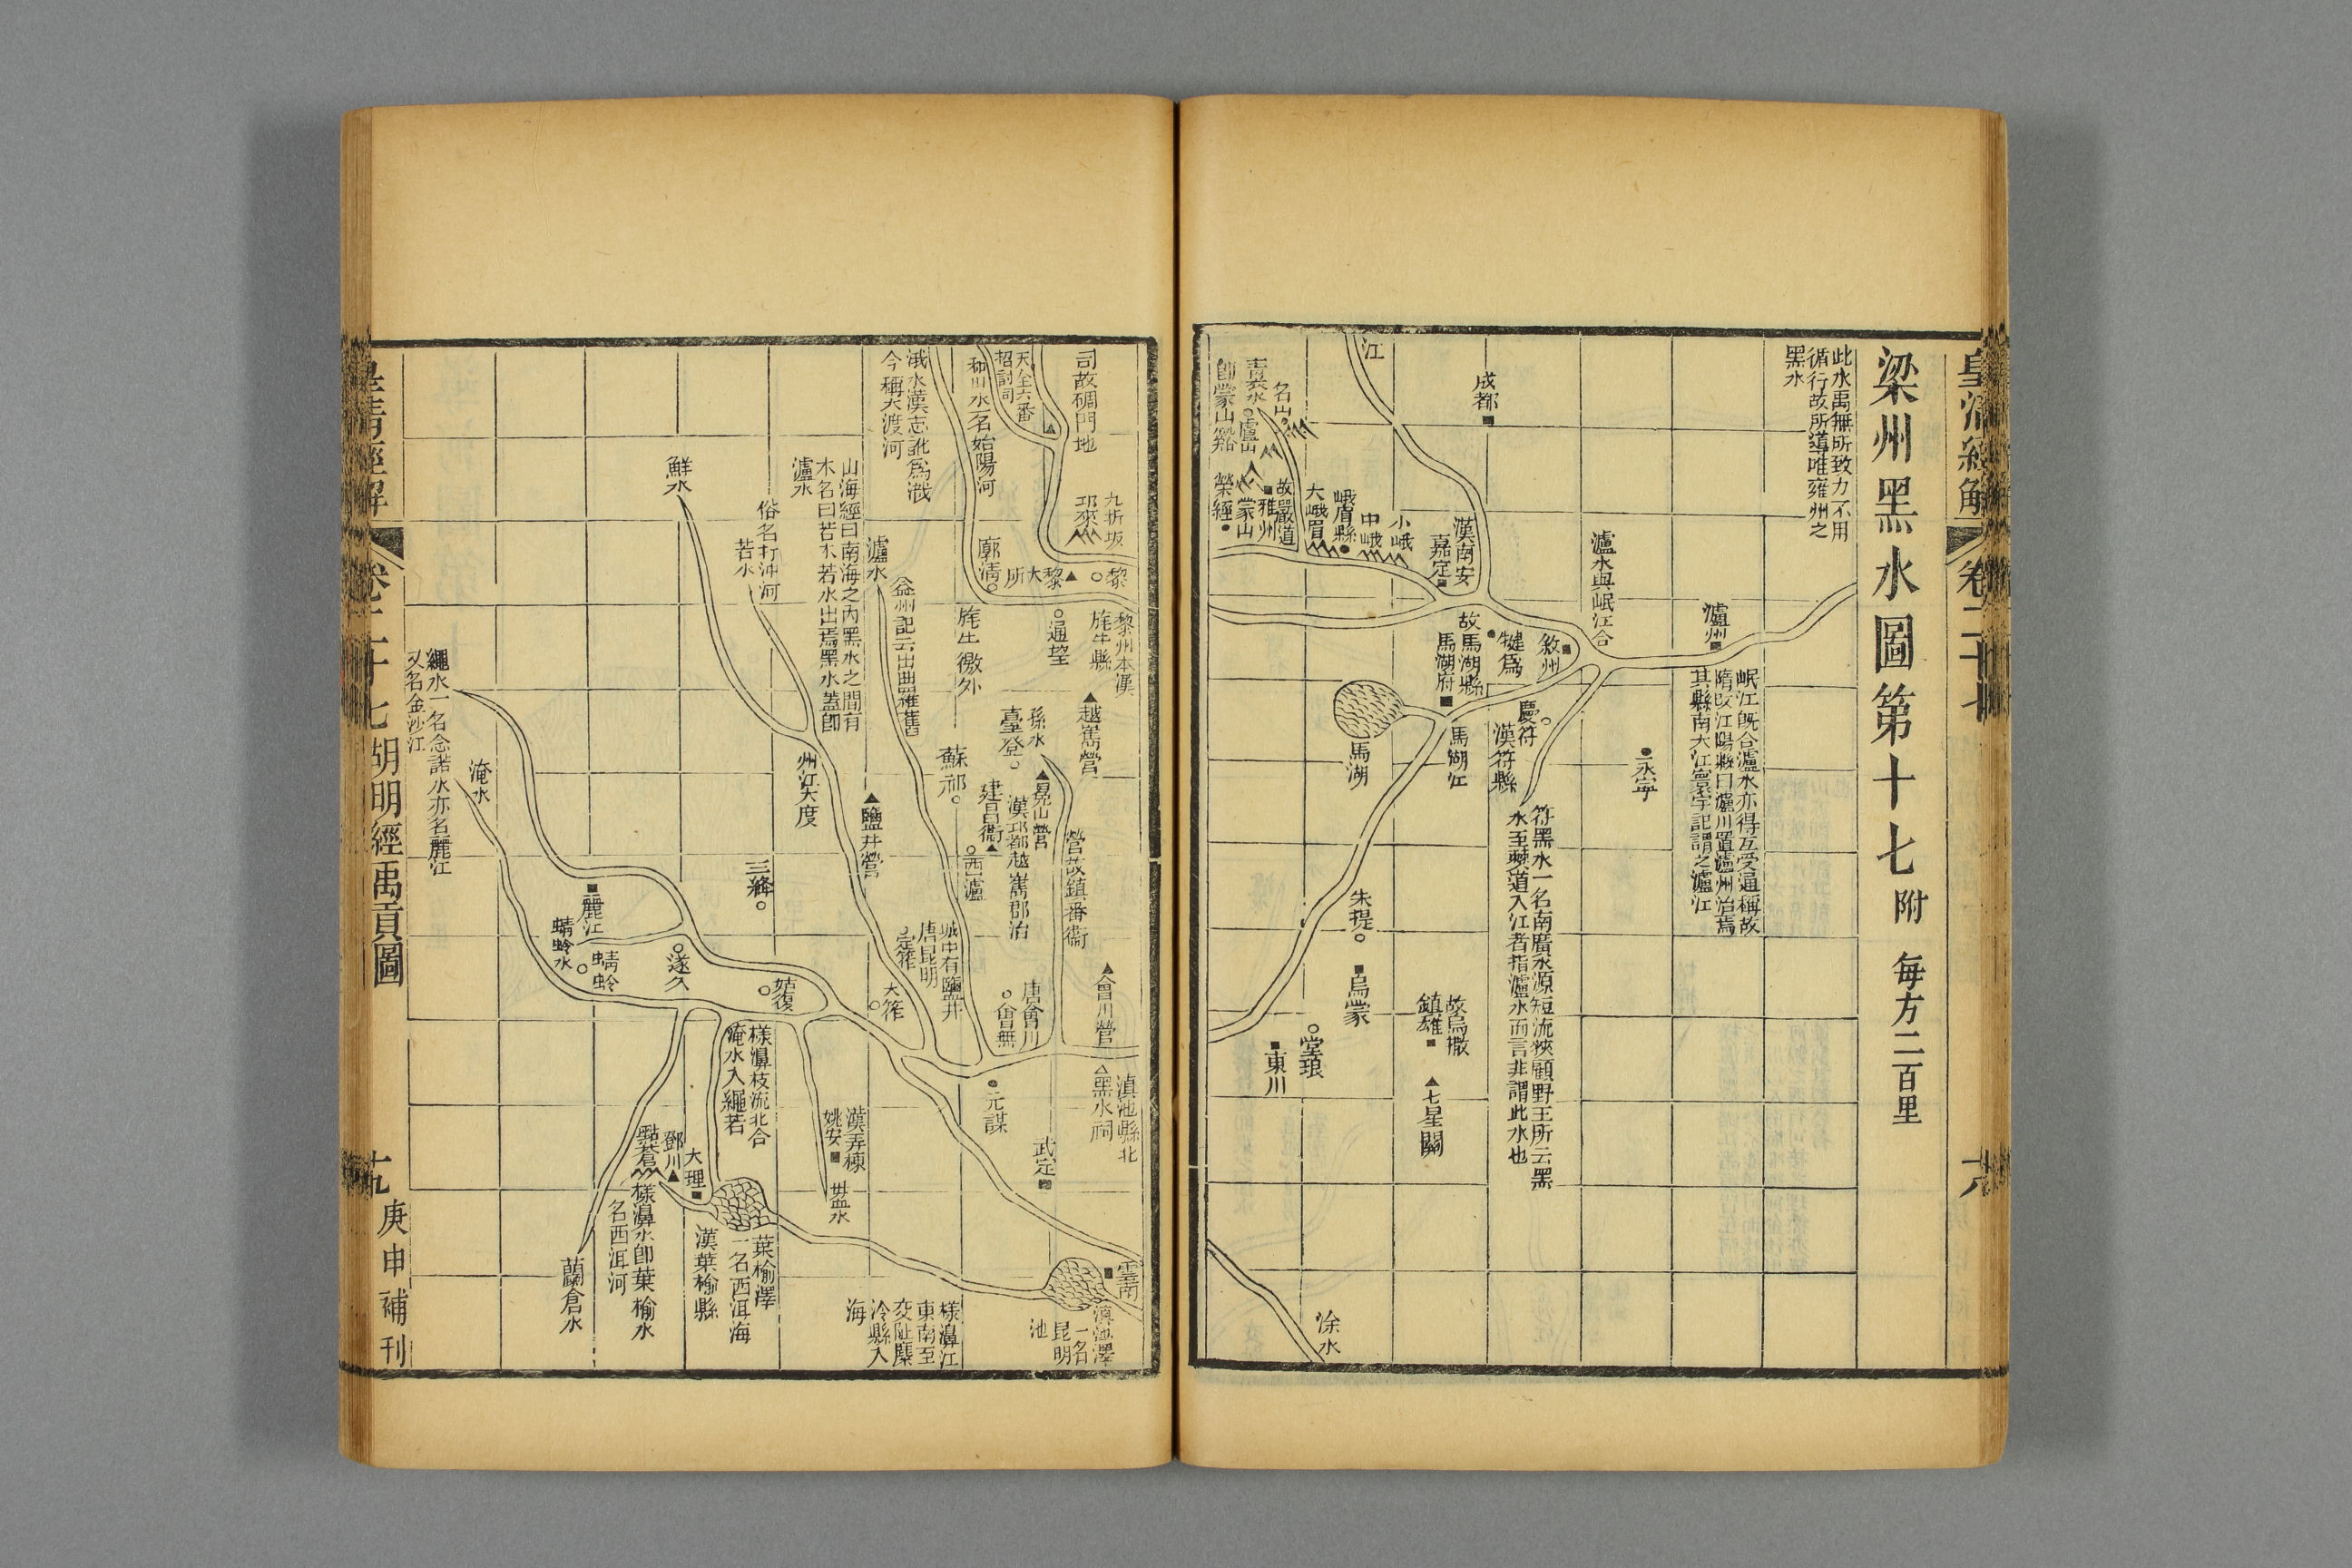 皇清經解
卷二十七
梁州黑水圖第十七附 每方二百里
此水禹無所致力不用
循行故所道唯雍州之
黑水
瀘州
岷江既合瀘水亦得互受通稱故
隋改江陽縣曰瀘川置瀘州治焉
其縣南大江寰宇記謂之瀘江
永寧
瀘水與岷江合
敘州
符黑水一名南廣水源短流狹顧野王所云黑
水至僰道入江者指瀘水而言非謂此水也
慶符
漢符縣
犍爲
成都
漢南安
嘉定
故馬湖縣
馬湖府
馬湖江
故烏撒
鎮雄
七星關
江
小峨
中峨
峨眉縣
大峨眉
馬湖
朱提
烏蒙
堂琅
東川
涂水
名山
青衣水
盧山
故嚴道
雅州
蒙山
榮經
司故碉門地
九折坂
邛來
黎
黎大所
黎州本漢
旄牛縣
通望
越嶲營
會川營
滇池縣北
黑水祠
雲南
滇池澤
一名
昆明
池
天全六番
招討司
和川水一名始陽河
廓清
旄牛徼外
孫水
臺登
冕山營
營故鎮番衞
漢邛都越嶲郡治
建昌衞
西瀘
蘇祁
唐會川
會無
元謀
武定
涐水漢志訛爲渽
今稱大渡河
瀘水
益州記云出曲羅嶲
城中有鹽井
唐昆明
定筰
大筰
㨾濞江
東南至
交阯麋
泠縣入
海
山海經曰南海之內黑水之間有
木名曰若木若水出焉黑水蓋卽
瀘水
俗名打沖河
若水
鹽井營
州江大度
漢弄棟
姚安
鮮水
三絳
姑復
㨾濞枝流北合
淹水入繩若
葉榆澤
一名西洱海
漢葉榆縣
大理
鄧川
點蒼
㨾濞水卽葉榆水
名西洱河
麗江
遂久
蜻蛉
蜻蛉水
蘭倉水
淹水
繩水一名念諾水亦名麗江
又名金沙江
皇清經解
卷二十七
胡明經禹貢圖
庚申補刊